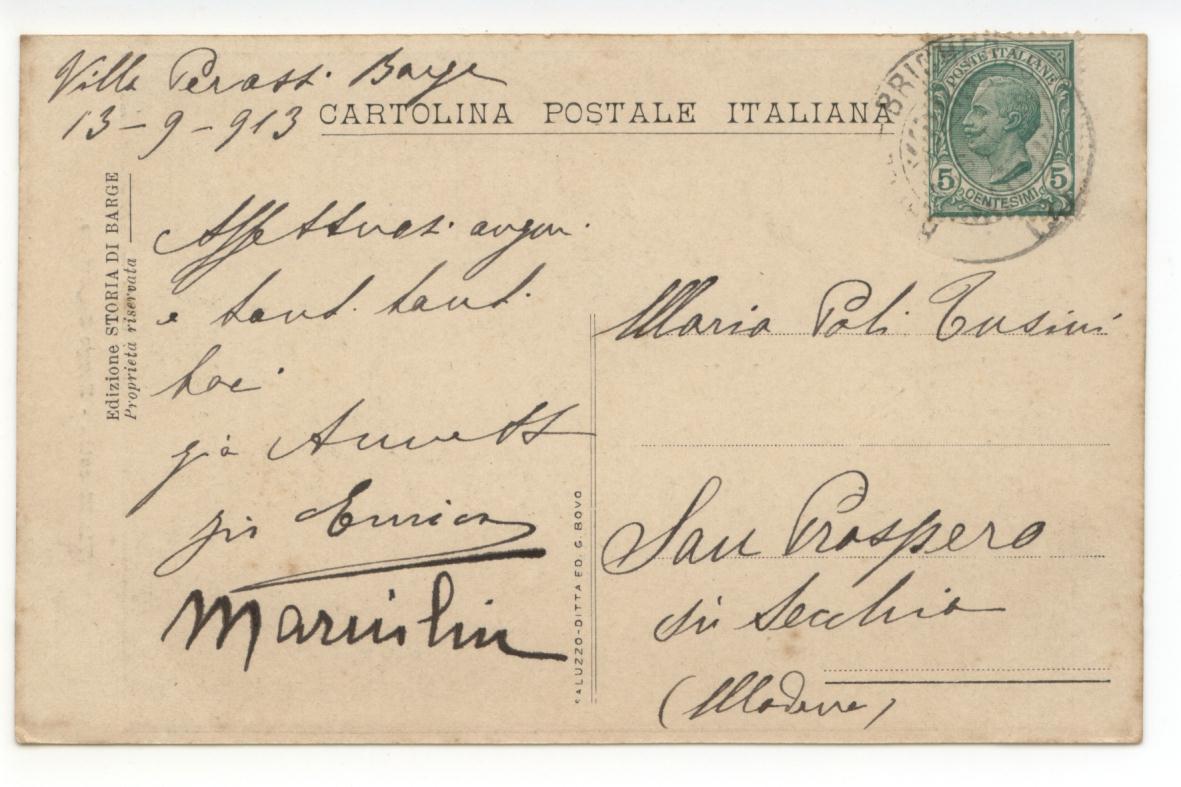 Villa Perassi Barge
13-9-913
CARTOLINA POSTALE ITALIANA
POSTE ITALIANE
5 5
CENTESIMI
Edizione STORIA DI BARGE
Proprietà riservata
Affettuosi auguri
e tanti tanti
baci
zia Annetta
zio Enrico
SALUZZO-DITTA ED. G. BOVO
Maria Poli Tusini
San Prospero
di Secchia
(Modena)